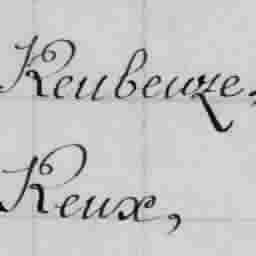 Reubeuze,
Reux,